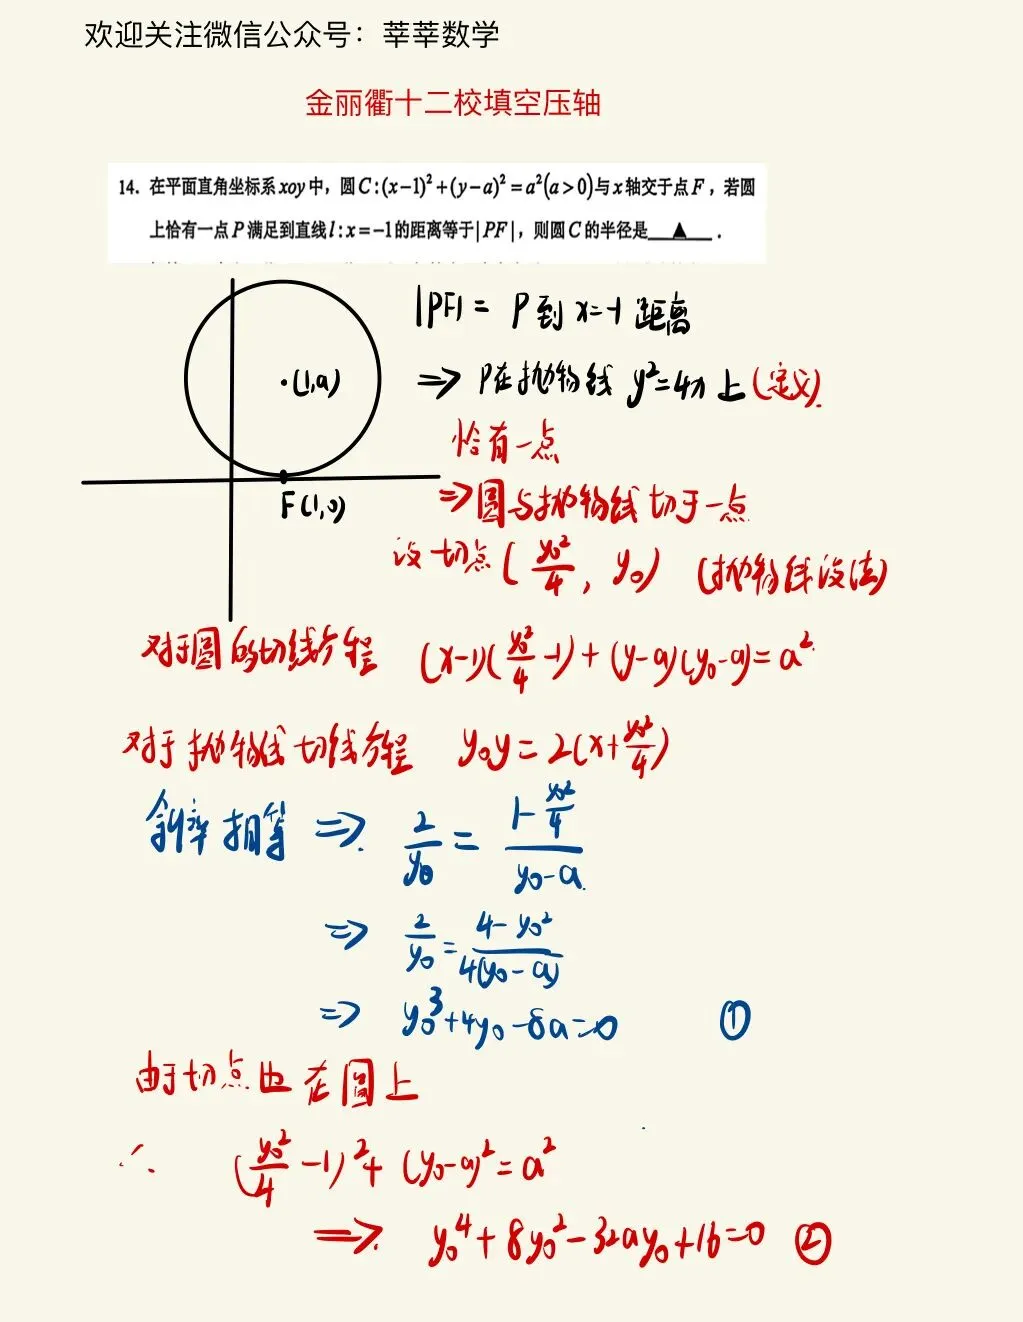 欢迎关注微信公众号：莘莘数学
金丽衢十二校填空压轴
14. 在平面直角坐标系xoy中，圆C:(x-1)²+(y-a)²=a²(a>0)与x轴交于点F，若圆
上恰有一点P满足到直线l:x=-1的距离等于|PF|，则圆C的半径是 ▲ .
|PF|= P到x=-1距离
·(1,a)
⇒ P在抛物线 y²=4x上(定义).
恰有一点
F(1,0)
⇒圆与抛物线切于一点
设切点(y₀²/4, y₀) (抛物线设法)
对于圆的切线方程 (x-1)(y₀²/4-1)+(y-a)(y₀-a)=a²
对于抛物线切线方程 y₀y=2(x+y₀²/4)
斜率相等 ⇒ 2/y₀=(1-y₀²/4)/(y₀-a)
⇒ 2/y₀=(4-y₀²)/4(y₀-a)
⇒ y₀³+4y₀-8a=0 ①
由于切点也在圆上
∴ (y₀²/4-1)²+(y₀-a)²=a²
⇒ y₀⁴+8y₀²-32ay₀+16=0 ②